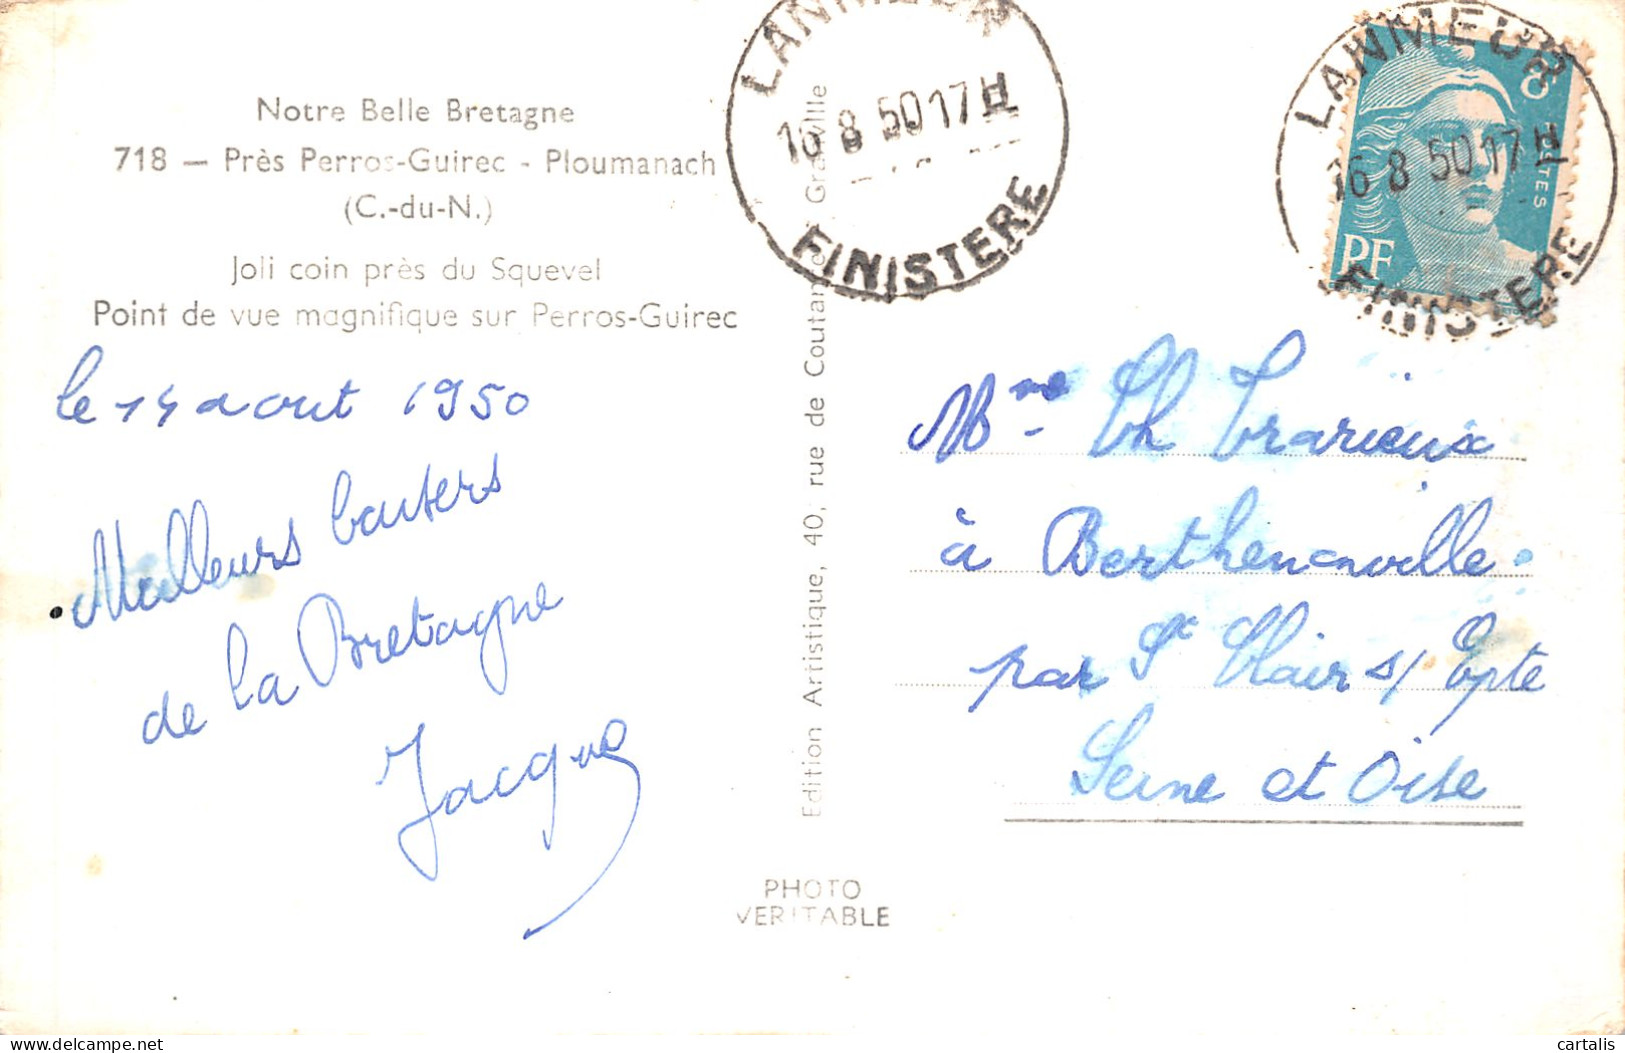 Notre Belle Bretagne
718 — Près Perros-Guirec - Ploumanach
(C.-du-N.)
Joli coin près du Squevel
Point de vue magnifique sur Perros-Guirec
le 14 aout 1950
Meilleurs baisers
de la Bretagne
Jacques
Edition Artistique, 40, rue de Coutances, Granville
PHOTO
VERITABLE
LANMEUR
16 8 50 17 H
FINISTERE
LANMEUR
16 8 50 17 H
FINISTERE
8
POSTES
PF
Mme Th Trarieux
à Berthenonville
par St Clair s/ Epte
Seine et Oise
cartalis